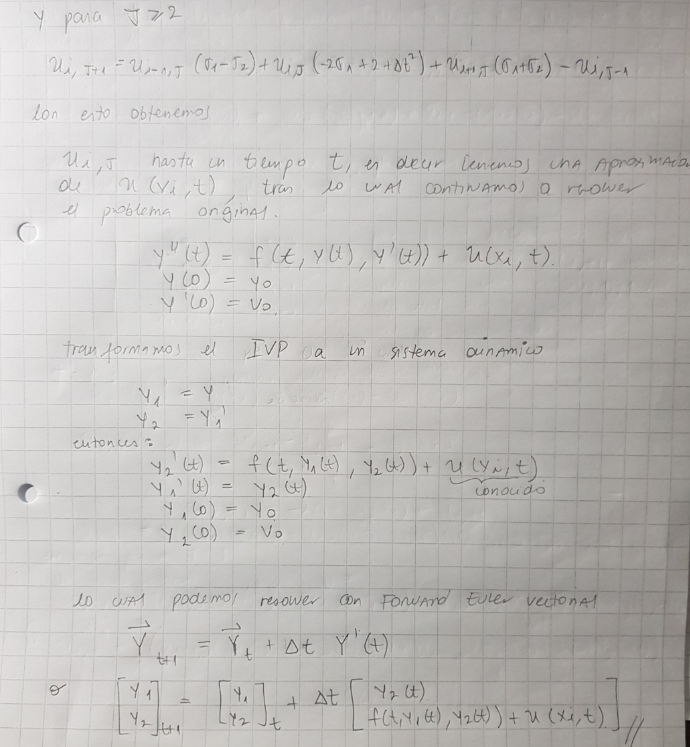 y para J ≥ 2
u_{i,J+1} = u_{i-1,J} (σ1-σ2) + u_{i,J} (-2σ1 + 2 + Δt²) + u_{i+1,J} (σ1+σ2) - u_{i,J-1}
Con esto obtenemos
u_{i,J} hasta un tiempo t, es decir tenemos una aproximada
de u(xi,t), tras lo cual continuamos a resolver
el problema original.
y''(t) = f(t, y(t), y'(t)) + u(xi, t).
y(0) = y0
y'(0) = v0.
transformamos el IVP a un sistema dinamico
y1 = y
y2 = y1'
entonces:
y2'(t) = f(t, y1(t), y2(t)) + u(xi, t)
y1'(t) = y2(t) conocido
y1(0) = y0
y2(0) = v0
lo cual podemos resolver con Forward Euler vectorial
Y_{t+1} = Y_t + Δt Y'(t)
o [y1 y2]_{t+1} = [y1 y2]_t + Δt [y2(t) f(t,y1(t),y2(t)) + u(xi,t)] //